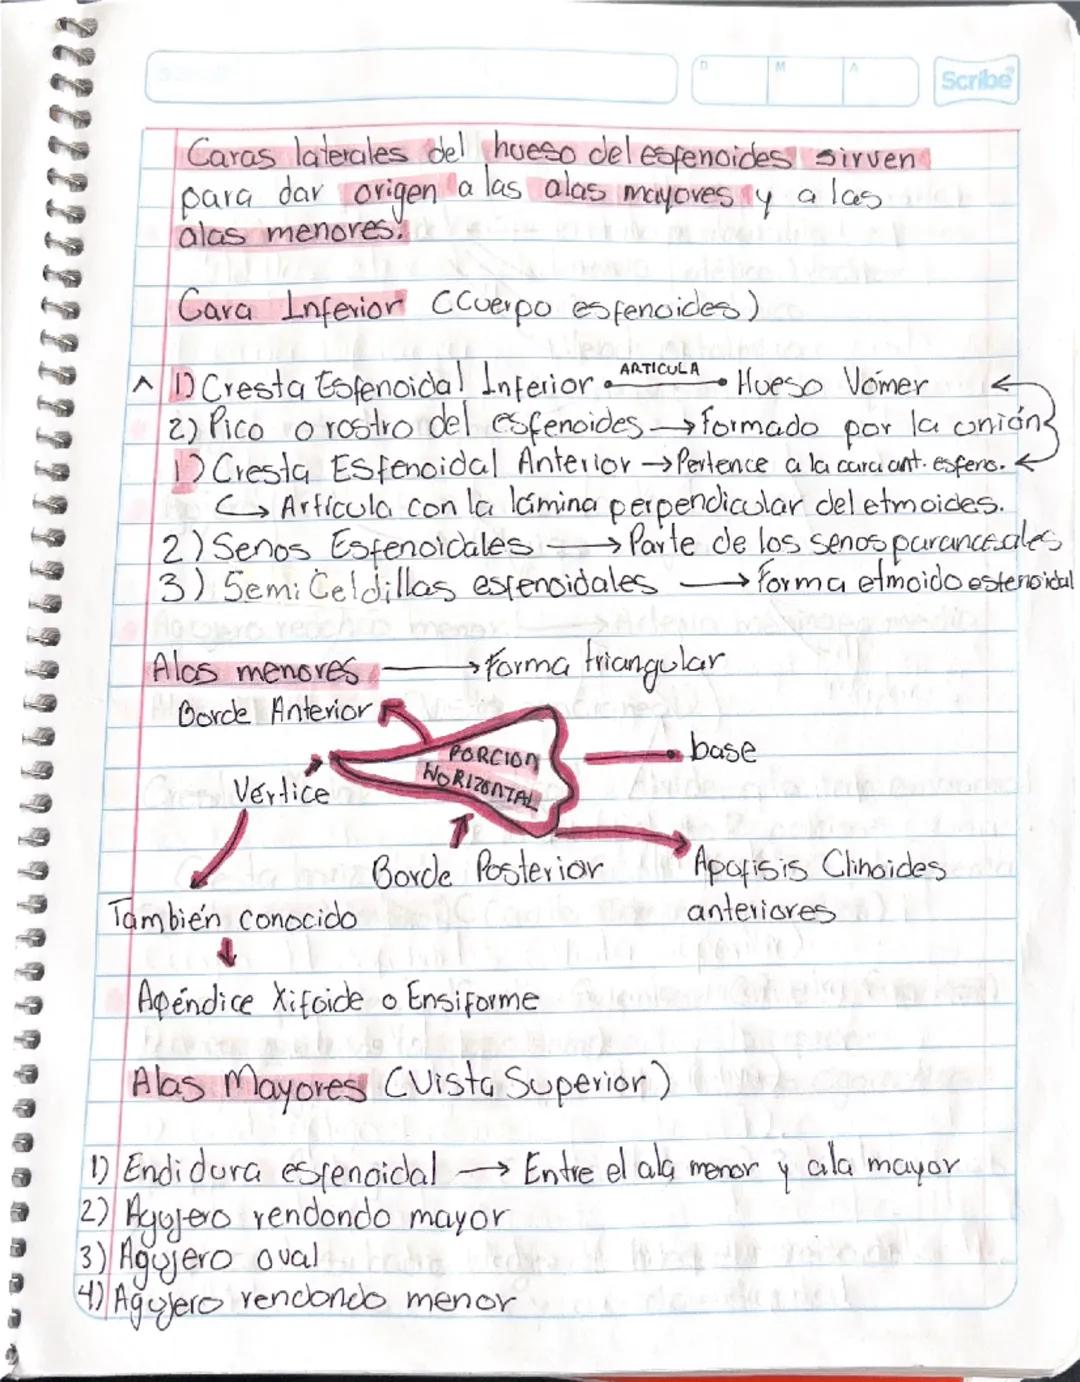 D M A Scribe
Caras laterales del hueso del esfenoides sirven
para dar origen a las alas mayores y a las
alas menores.
Cara Inferior (Cuerpo esfenoides)
1) Cresta Esfenoidal Inferior ARTICULA Hueso Vomer
2) Pico o rostro del esfenoides → formado por la unión
1) Cresta Esfenoidal Anterior → Pertence a la cara ant. esfeno.
↳ Artícula con la lámina perpendicular del etmoides.
2) Senos Esfenoidales → Parte de los senos paranasales
3) Semi Celdillas esfenoidales → forma etmoido esfenoidal
Alas menores → forma triangular
Borde Anterior
PORCION
HORIZONTAL
base
Vértice
Borde Posterior
Apofisis Clinoides
anteriores
También conocido
Apéndice Xifoide o Ensiforme
Alas Mayores (Vista Superior)
1) Endidura esfenoidal → Entre el ala menor y ala mayor
2) Agujero rendondo mayor
3) Agujero oval
4) Agujero rendondo menor